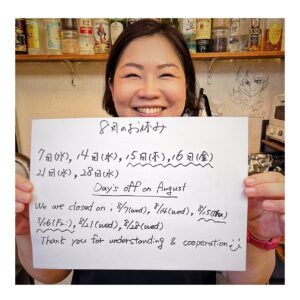 8月のお休み
7日(水), 14日(水), 15日(木), 16日(金)
21日(水), 28日(水)
Day's off on August
We are closed on ; 8/7(wed), 8/14(wed), 8/15(thu)
8/16(Fri), 8/21(wed), 8/28(wed)
Thank you for understanding & cooperation